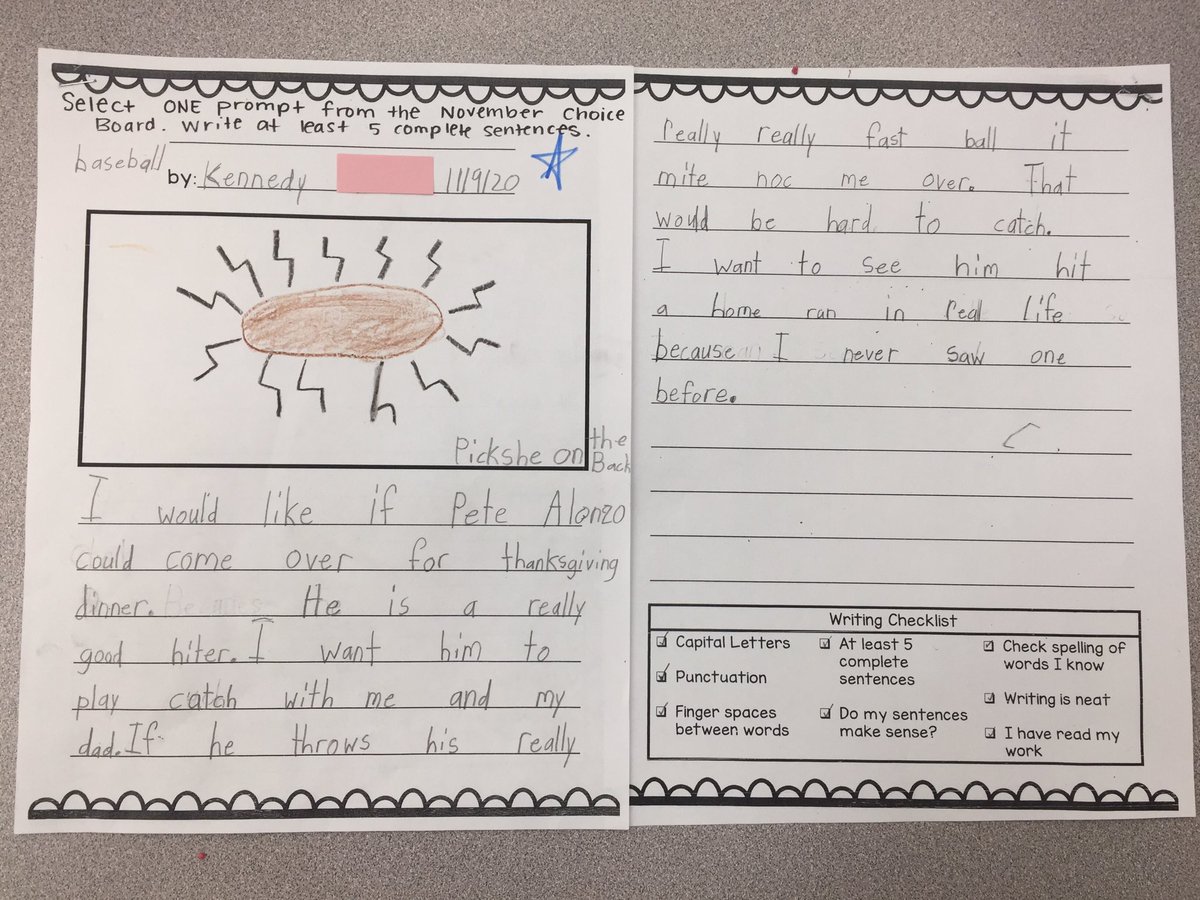 Select ONE prompt from the November Choice
Board. Write at least 5 complete sentences.
baseball
by: Kennedy 11/9/20
Pickshe on the
Back
I would like if Pete Alonzo
could come over for thanksgiving
dinner. He is a really
good hiter. I want him to
play catch with me and my
dad. If he throws his really
really really fast ball it
mite noc me over. That
would be hard to catch.
I want to see him hit
a home run in real life
because I never saw one
before.
Writing Checklist
Capital Letters
Punctuation
Finger spaces
between words
At least 5
complete
sentences
Do my sentences
make sense?
Check spelling of
words I know
Writing is neat
I have read my
work